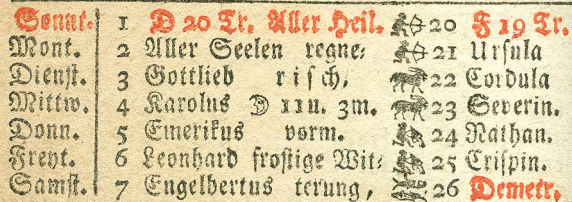 Sonnt. 1 D 20 Tr. Aller Heil. 20 F 19 Tr.
Mont. 2 Aller Seelen regne⸗ 21 Ursula
Dienst. 3 Gottlieb risch, 22 Cordula
Mittw. 4 Karolus ☽ 11u. 3m. 23 Severin.
Donn. 5 Emerikus vorm. 24 Nathan.
Freyt. 6 Leonhard frostige Wit⸗ 25 Crispin.
Samst. 7 Engelbertus terung, 26 Demetr.